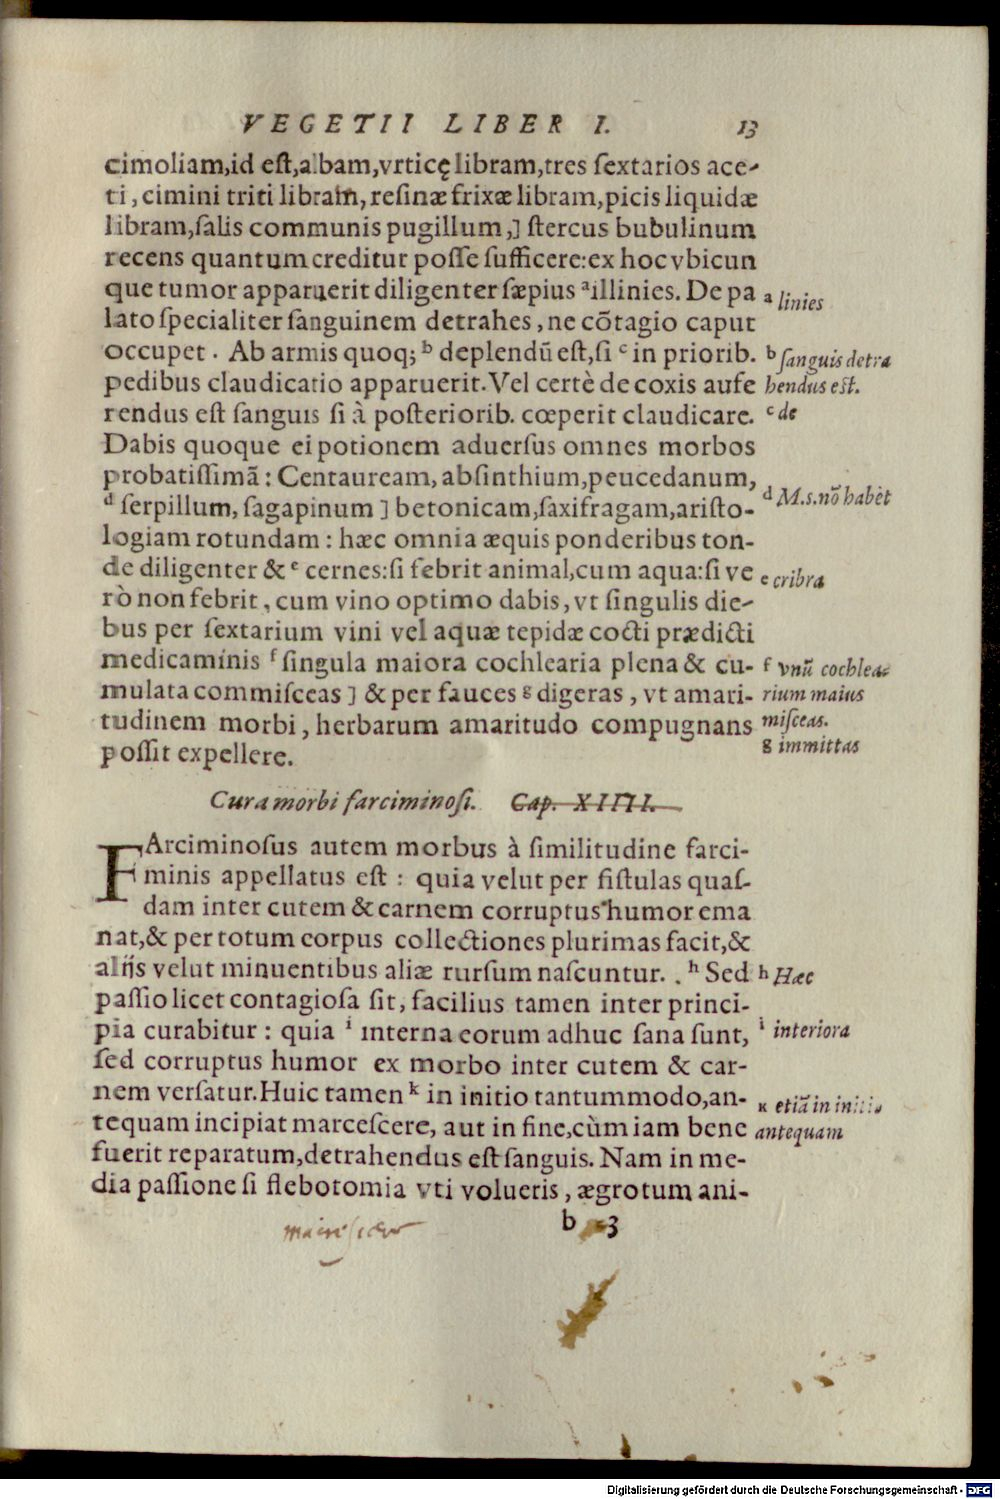 VEGETII LIBER I. 13
cimoliam,id eſt,albam,vrticę libram,tres ſextarios ace-
ti, cimini triti libram, reſinæ frixæ libram,picis liquidæ
libram,ſalis communis pugillum,] ſtercus bubulinum
recens quantum creditur poſſe ſufficere:ex hoc vbicun
que tumor apparuerit diligenter ſæpius ᵃillinies. De pa
a linies
lato ſpecialiter ſanguinem detrahes, ne cõtagio caput
occupet. Ab armis quoq; ᵇ deplendũ eſt, ſi ᶜ in priorib.
b ſanguis detra
pedibus claudicatio apparuerit. Vel certè de coxis aufe
hendus eſt.
rendus eſt ſanguis ſi à poſteriorib. cœperit claudicare.
c de
Dabis quoque ei potionem aduerſus omnes morbos
probatiſſimã: Centauream, abſinthium,peucedanum,
ᵈ ſerpillum, ſagapinum ] betonicam,ſaxifragam,ariſto-
d M.s.nō habēt
logiam rotundam: hæc omnia æquis ponderibus ton-
de diligenter & ᵉ cernes:ſi febrit animal,cum aqua:ſi ve
e cribra
rò non febrit, cum vino optimo dabis, vt ſingulis die-
bus per ſextarium vini vel aquæ tepidæ cocti prædicti
medicaminis ᶠ ſingula maiora cochlearia plena & cu-
f vnũ cochlea-
mulata commiſceas ] & per fauces ᵍ digeras, vt amari-
rium maius
tudinem morbi, herbarum amaritudo compugnans
miſceas.
poſſit expellere.
g immittas
Cura morbi farciminoſi. Cap. XIIII.
FArciminoſus autem morbus à ſimilitudine farci-
minis appellatus eſt: quia velut per fiſtulas quaſ-
dam inter cutem & carnem corruptus humor ema
nat,& per totum corpus collectiones plurimas facit,&
alijs velut minuentibus aliæ rurſum naſcuntur. . ʰ Sed
h Hæc
paſſio licet contagioſa ſit, facilius tamen inter princi-
pia curabitur: quia ⁱ interna eorum adhuc ſana ſunt,
i interiora
ſed corruptus humor ex morbo inter cutem & car-
nem verſatur. Huic tamen ᵏ in initio tantummodo,an-
k etiã in initio
tequam incipiat marceſcere, aut in fine,cùm iam bene
antequam
fuerit reparatum,detrahendus eſt ſanguis. Nam in me-
dia paſſione ſi flebotomia vti volueris, ægrotum ani-
b 3
Digitalisierung gefördert durch die Deutsche Forschungsgemeinschaft - DFG